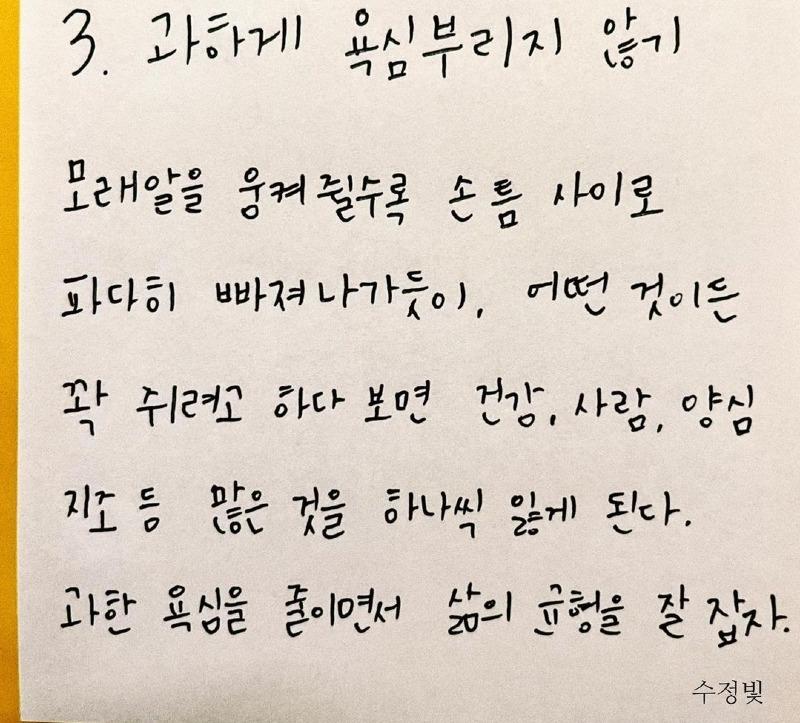 3. 과하게 욕심부리지 않기
모래알을 움켜쥘수록 손 틈 사이로
파다히 빠져나가듯이, 어떤 것이든
꽉 쥐려고 하다 보면 건강, 사람, 양심
지조 등 많은 것을 하나씩 잃게 된다.
과한 욕심을 줄이면서 삶의 균형을 잘 잡자.
수정빛